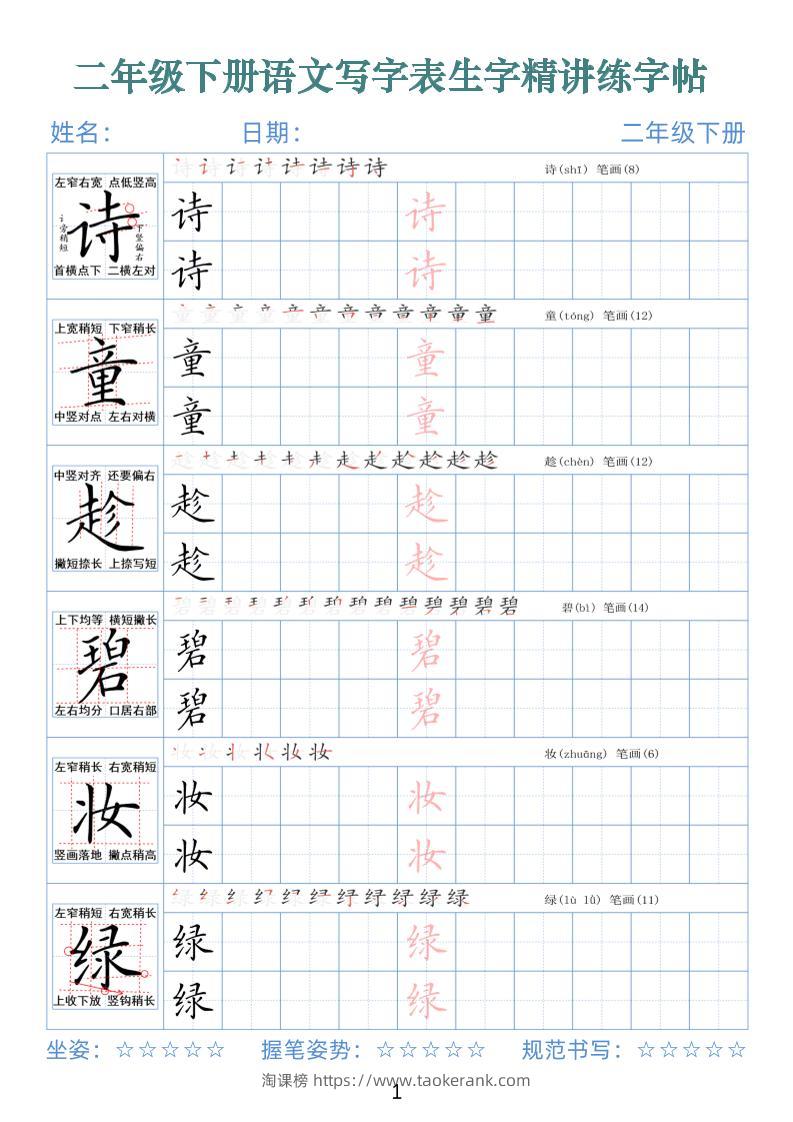 二年级下册语文写字表生字精讲练字帖
姓名: 日期: 二年级下册
诗(shī) 笔画(8)
左窄右宽 点低竖高
诗
讠旁稍短
下竖偏右
首横点下 二横左对
诗 诗
诗 诗
童(tóng) 笔画(12)
上宽稍短 下窄稍长
童
中竖对点 左右对横
童 童
童 童
趁(chèn) 笔画(12)
中竖对齐 还要偏右
趁
撇短捺长 上捺写短
趁 趁
趁 趁
碧(bì) 笔画(14)
上下均等 横短撇长
碧
左右均分 口居右部
碧 碧
碧 碧
妆(zhuāng) 笔画(6)
左窄稍长 右宽稍短
妆
竖画落地 撇点稍高
妆 妆
妆 妆
绿(lù lǜ) 笔画(11)
左窄稍短 右宽稍长
绿
上收下放 竖钩稍长
绿 绿
绿 绿
坐姿: ☆☆☆☆☆ 握笔姿势: ☆☆☆☆☆ 规范书写: ☆☆☆☆☆
淘课榜 https://www.taokerank.com
1